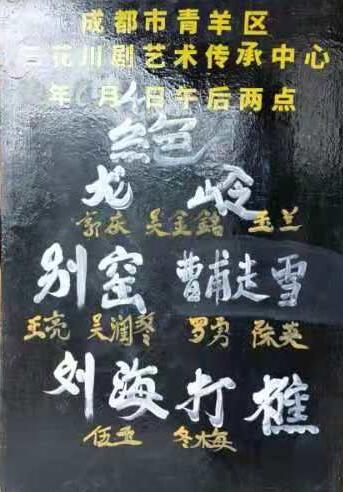 成都市青羊区
百花川剧艺术传承中心
年 月 日午后两点
絕
龙 岭
吴金銘 玉兰
别窑 曹甫走雪
王亮 吴润琴 罗勇 陈英
刘海打樵
冬梅